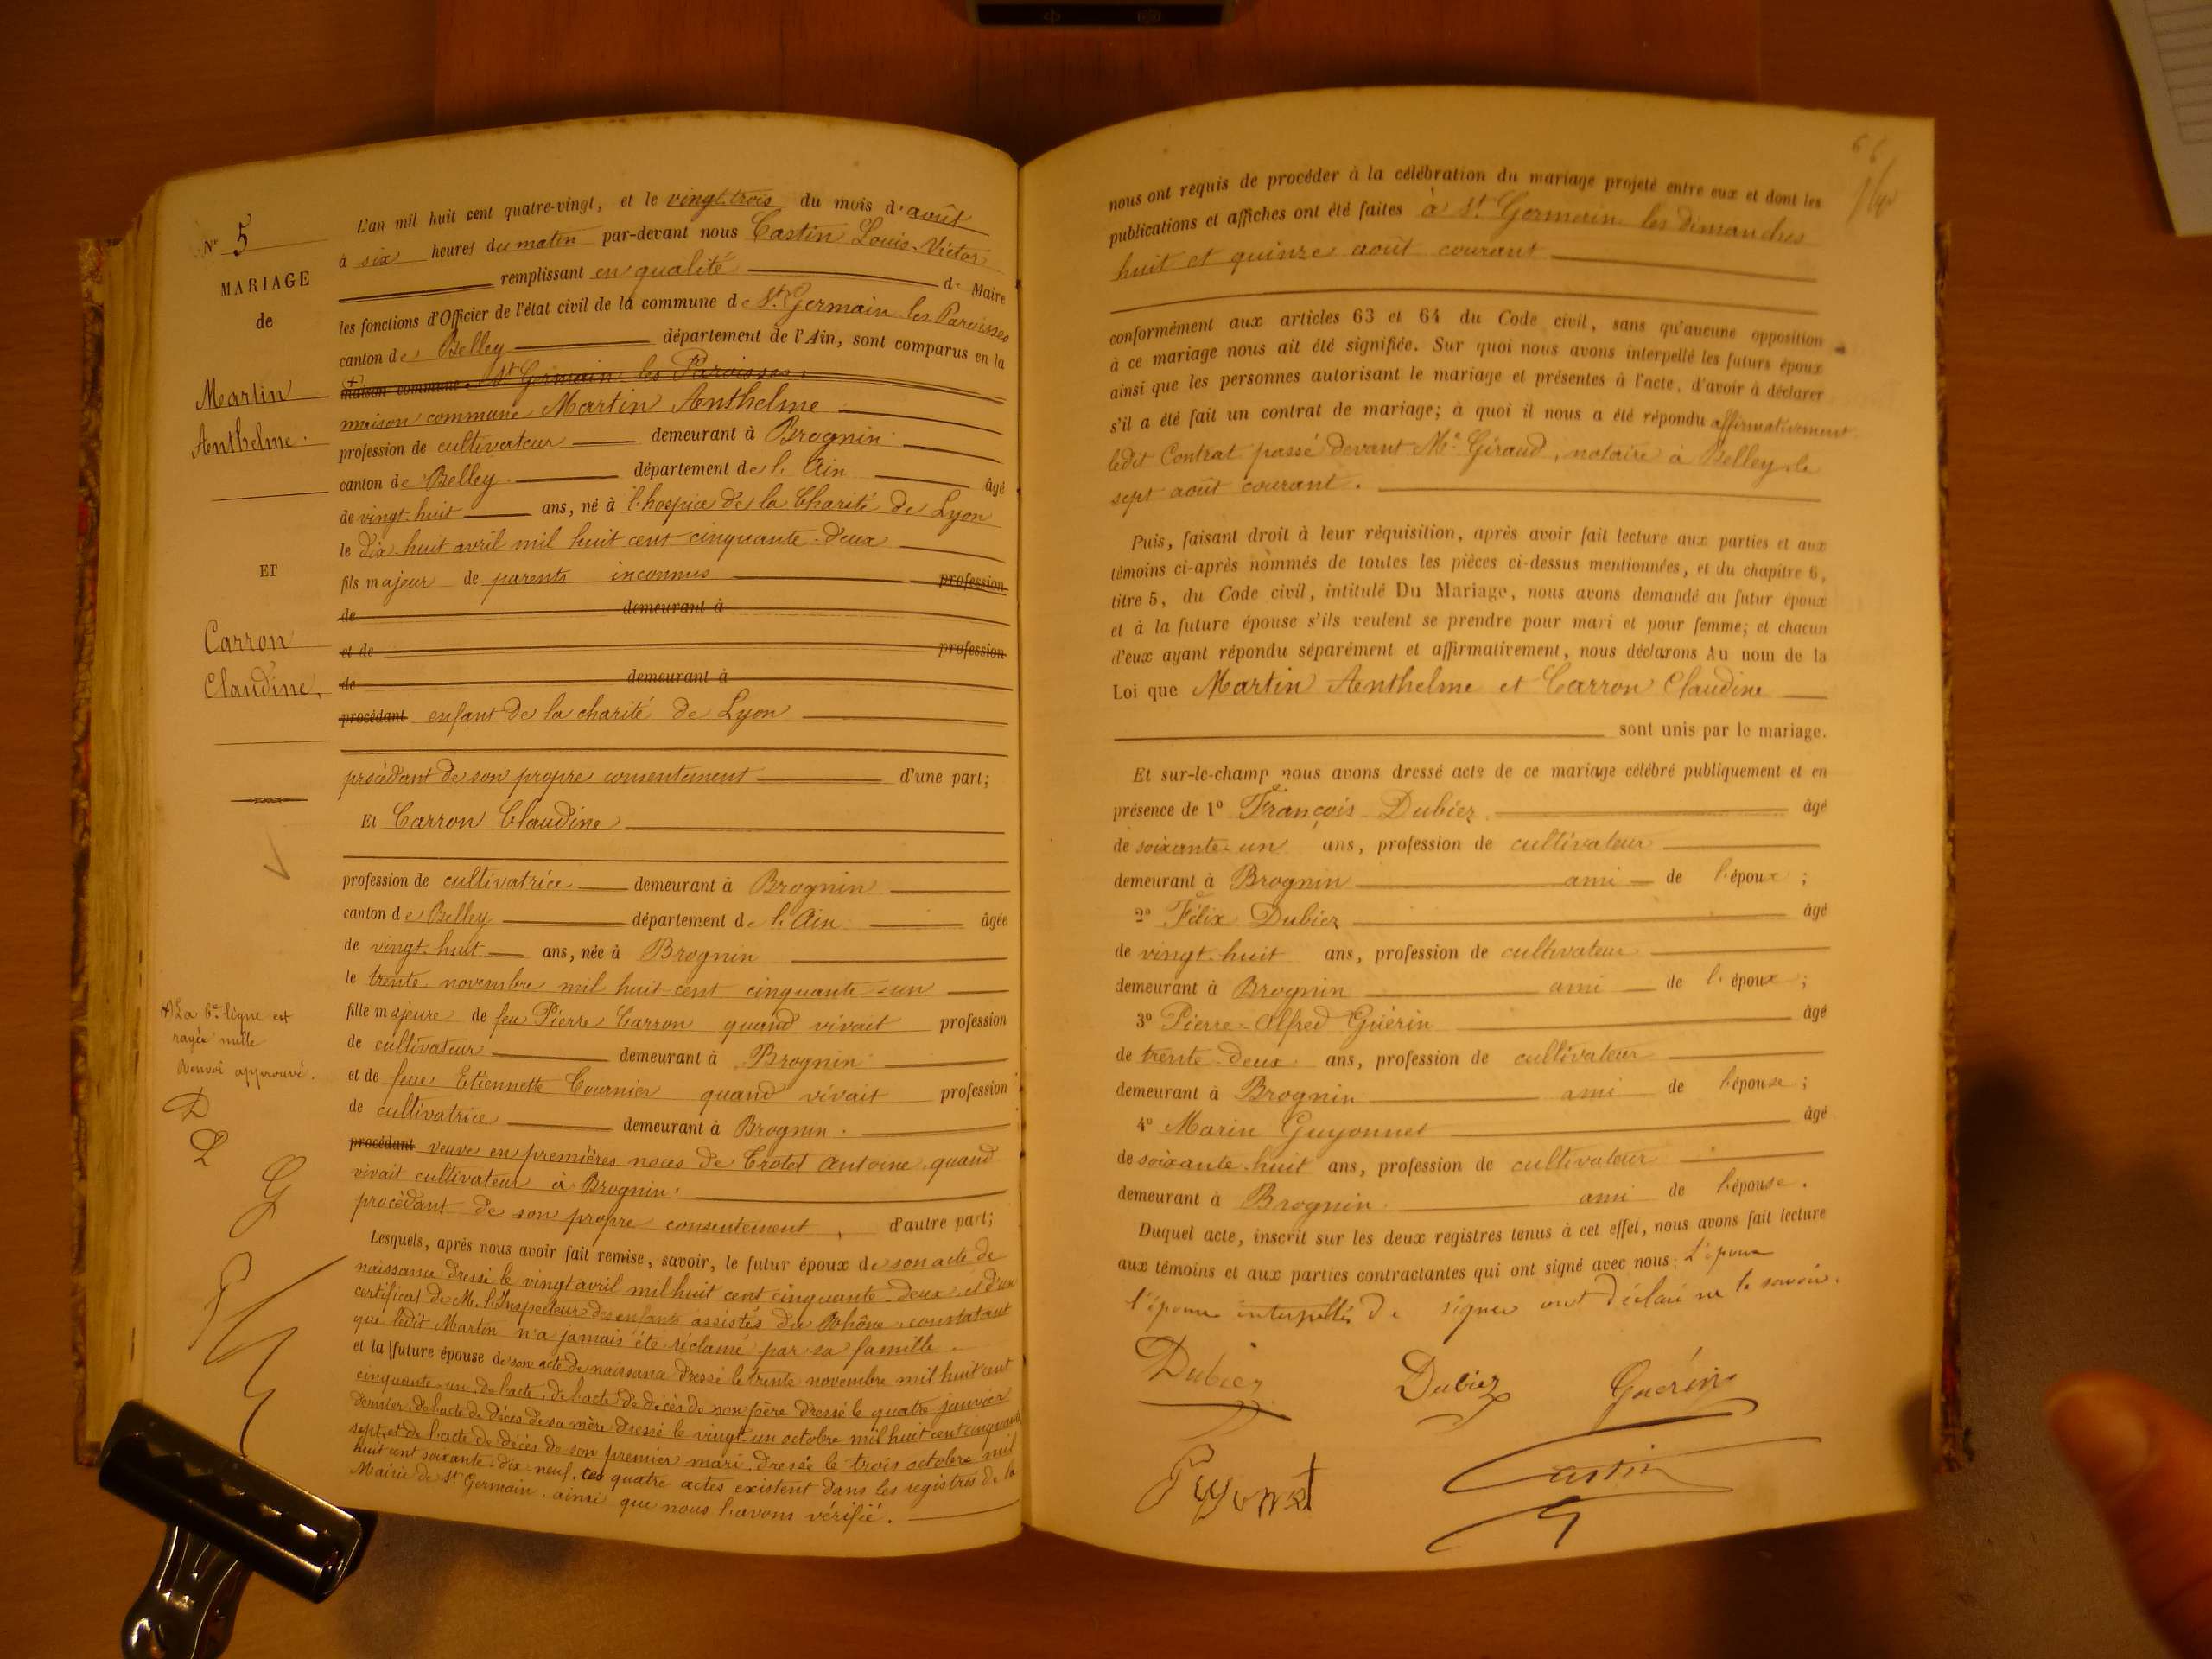 N° 5
MARIAGE
de
Martin
Anthelme.
ET
Carron
Claudine,
(+) La 6e ligne est
rayée nulle
Renvoi approuvé.
D
D
G
L'an mil huit cent quatre-vingt, et le vingt-trois du mois d'août
à six heures du matin par-devant nous Castin Louis-Victor
remplissant en qualité de Maire
les fonctions d'Officier de l'état civil de la commune de St Germain-les-Paroisses
canton de Belley département de l'Ain, sont comparus en la
+ maison commune St Germain les Paroisses.
maison commune Martin Anthelme
profession de cultivateur demeurant à Brognin
canton de Belley département de l'Ain âgé
de vingt-huit ans, né à l'hospice de la Charité de Lyon
le dix-huit avril mil huit cent cinquante-deux
fils majeur de parents inconnus profession
de demeurant à
et de profession
de demeurant à
procédant enfant de la charité de Lyon
procédant de son propre consentement d'une part;
Et Carron Claudine
profession de cultivatrice demeurant à Brognin
canton de Belley département de l'Ain âgée
de vingt-huit ans, née à Brognin
le trente novembre mil huit cent cinquante-un
fille majeure de feu Pierre Carron quand vivait profession
de cultivateur demeurant à Brognin
et de feue Etiennette Cournier quand vivait profession
de cultivatrice demeurant à Brognin.
procédant veuve en premières noces de Trolet Antoine, quand
vivait cultivateur à Brognin.
procédant de son propre consentement, d'autre part;
Lesquels, après nous avoir fait remise, savoir, le futur époux de son acte de
naissance dressé le vingt avril mil huit cent cinquante-deux et d'un
certificat de M. l'Inspecteur des enfants assistés du Rhône constatant
que ledit Martin n'a jamais été réclamé par sa famille.
et la future épouse de son acte de naissance dressé le trente novembre mil huit cent
cinquante-un, de l'acte, de l'acte de décès de son père dressé le quatre janvier
dernier, de l'acte de décès de sa mère dressé le vingt-un octobre mil huit cent cinquante
sept, et de l'acte de décès de son premier mari dressé le trois octobre mil
huit cent soixante-dix-neuf, ces quatre actes existent dans les registres de la
Mairie de St Germain, ainsi que nous l'avons vérifié.
66
nous ont requis de procéder à la célébration du mariage projeté entre eux et dont les
publications et affiches ont été faites à St Germain les dimanches
huit et quinze août courant
conformément aux articles 63 et 64 du Code civil, sans qu'aucune opposition
à ce mariage nous ait été signifiée. Sur quoi nous avons interpellé les futurs époux
ainsi que les personnes autorisant le mariage et présentes à l'acte, d'avoir à déclarer
s'il a été fait un contrat de mariage; à quoi il nous a été répondu affirmativement
ledit Contrat passé devant Me Giraud, notaire à Belley, le
sept août courant.
Puis, faisant droit à leur réquisition, après avoir fait lecture aux parties et aux
témoins ci-après nommés de toutes les pièces ci-dessus mentionnées, et du chapitre 6,
titre 5, du Code civil, intitulé Du Mariage, nous avons demandé au futur époux
et à la future épouse s'ils veulent se prendre pour mari et pour femme; et chacun
d'eux ayant répondu séparément et affirmativement, nous déclarons Au nom de la
Loi que Martin Anthelme et Carron Claudine
sont unis par le mariage.
Et sur-le-champ nous avons dressé acte de ce mariage célébré publiquement et en
présence de 1° François Dubiez âgé
de soixante-un ans, profession de cultivateur
demeurant à Brognin ami de l'époux;
2° Félix Dubiez âgé
de vingt-huit ans, profession de cultivateur
demeurant à Brognin ami de l'époux;
3° Pierre-Alfred Guérin âgé
de trente-deux ans, profession de cultivateur
demeurant à Brognin ami de l'épouse;
4° Marin Guyonnet âgé
de soixante-huit ans, profession de cultivateur
demeurant à Brognin ami de l'épouse.
Duquel acte, inscrit sur les deux registres tenus à cet effet, nous avons fait lecture
aux témoins et aux parties contractantes qui ont signé avec nous. L'époux
l'épouse interpellés de signer ont déclaré ne le savoir.
Dubiez Dubiez Guérin
Castin